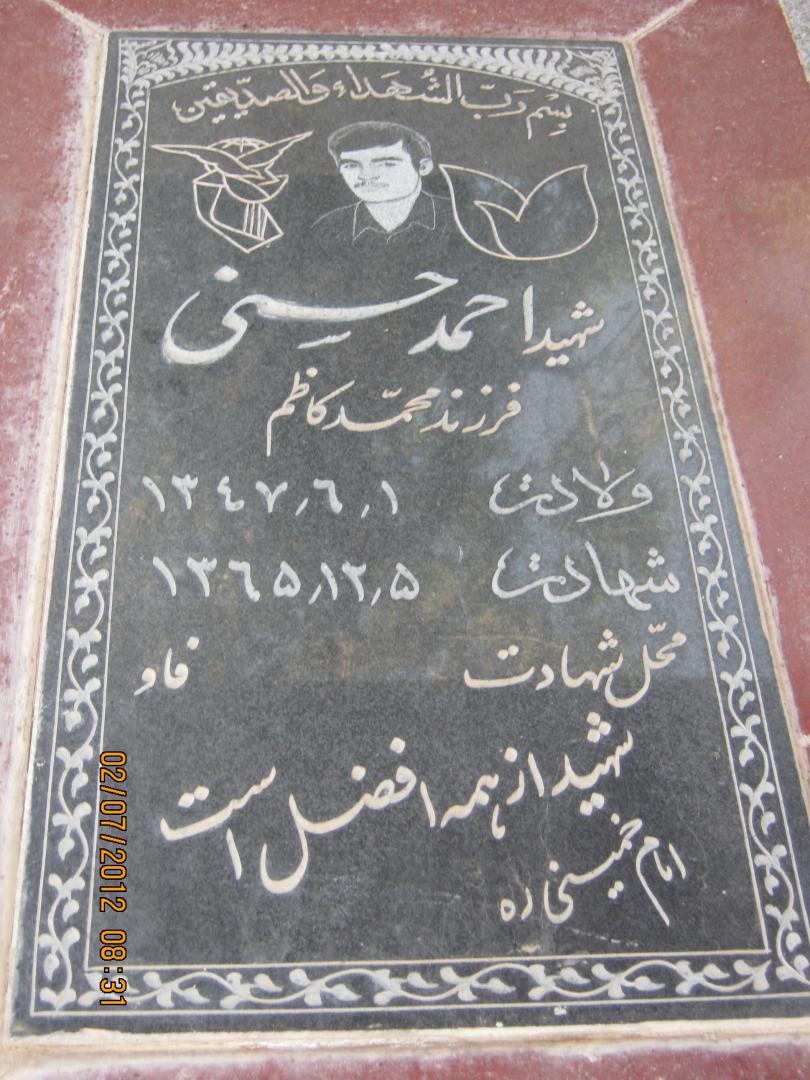 بِسْمِ رَبِّ الشُّهَداءِ وَالصدّیقین
شهید احمد حسنی
فرزند محمّد کاظم
ولادت ۱٫۶٫۱۳۴۷
شهادت ۵٫۱۲٫۱۳۶۵
محلّ شهادت فاو
شهید از همه افضل است
امام خمینی ره
02/07/2012 08:31